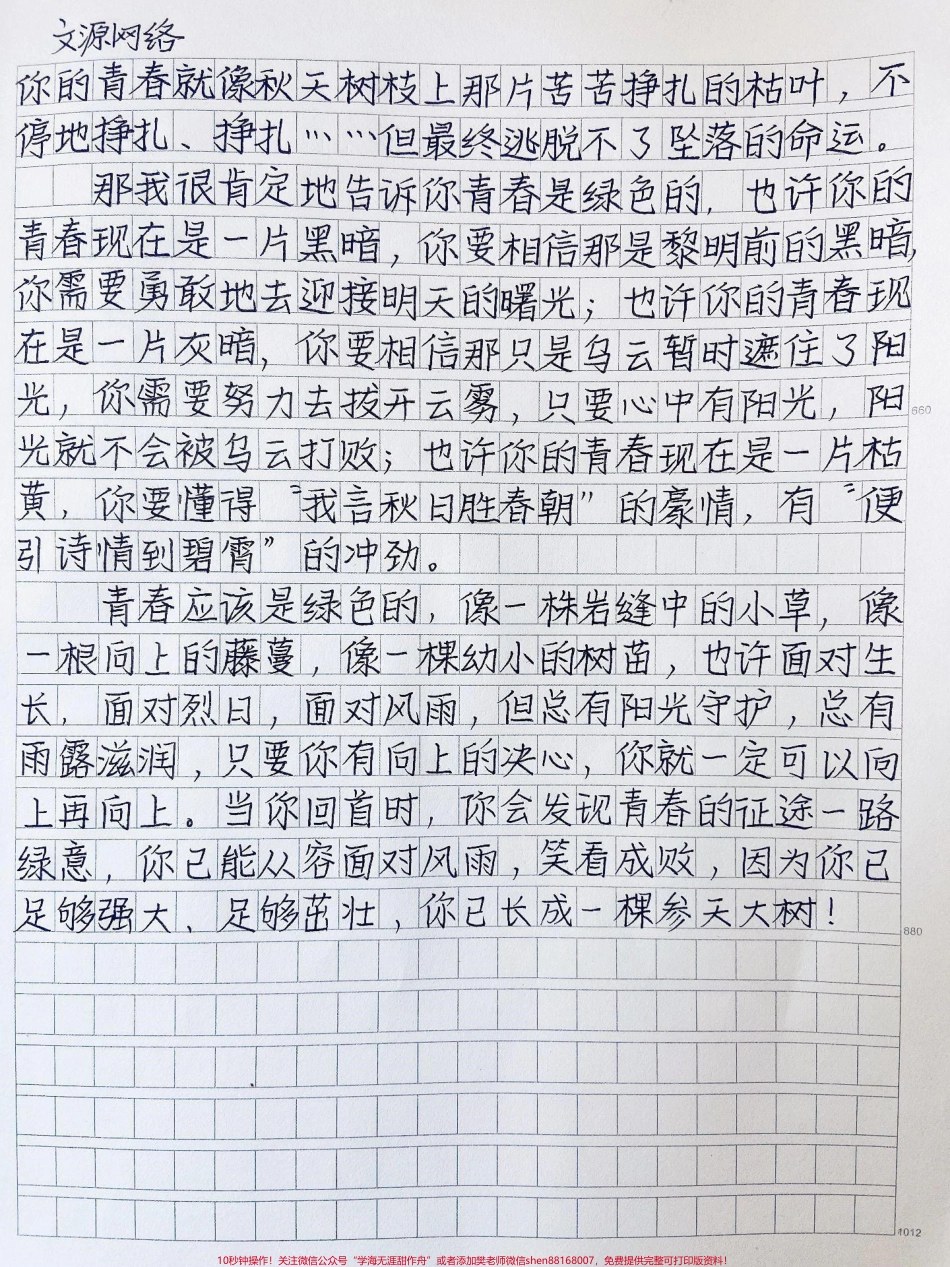 文源网络
你的青春就像秋天树枝上那片苦苦挣扎的枯叶，不
停地挣扎、挣扎……但最终逃脱不了坠落的命运。
那我很肯定地告诉你青春是绿色的，也许你的
青春现在是一片黑暗，你要相信那是黎明前的黑暗，
你需要勇敢地去迎接明天的曙光；也许你的青春现
在是一片灰暗，你要相信那只是乌云暂时遮住了阳
光，你需要努力去拔开云雾，只要心中有阳光，阳
660
光就不会被乌云打败；也许你的青春现在是一片枯
黄，你要懂得“我言秋日胜春朝”的豪情，有“便
引诗情到碧霄”的冲劲。
青春应该是绿色的，像一株岩缝中的小草，像
一根向上的藤蔓，像一棵幼小的树苗，也许面对生
长，面对烈日，面对风雨，但总有阳光守护，总有
雨露滋润，只要你有向上的决心，你就一定可以向
上再向上。当你回首时，你会发现青春的征途一路
绿意，你已能从容面对风雨，笑看成败，因为你已
足够强大、足够茁壮，你已长成一棵参天大树！
880
1012
10秒钟操作！关注微信公众号“学海无涯甜作舟”或者添加樊老师微信shen88168007，免费提供完整可打印版资料！